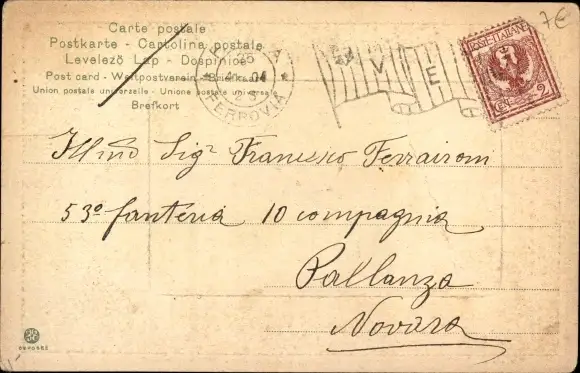 Carte postale
Postkarte - Cartolina postale
Levelező Lap - Dopisnice
Post card - Weltpostverein - Briefkaart
Union postale universelle - Unione postale universale
Brefkort
25
04
23
FERROVIA
V E
POSTE ITALIANE
CENT 2
7€
Illmo Sigr Francesco Ferraironi
53º fanteria 10 compagnia
Pallanza
Novara